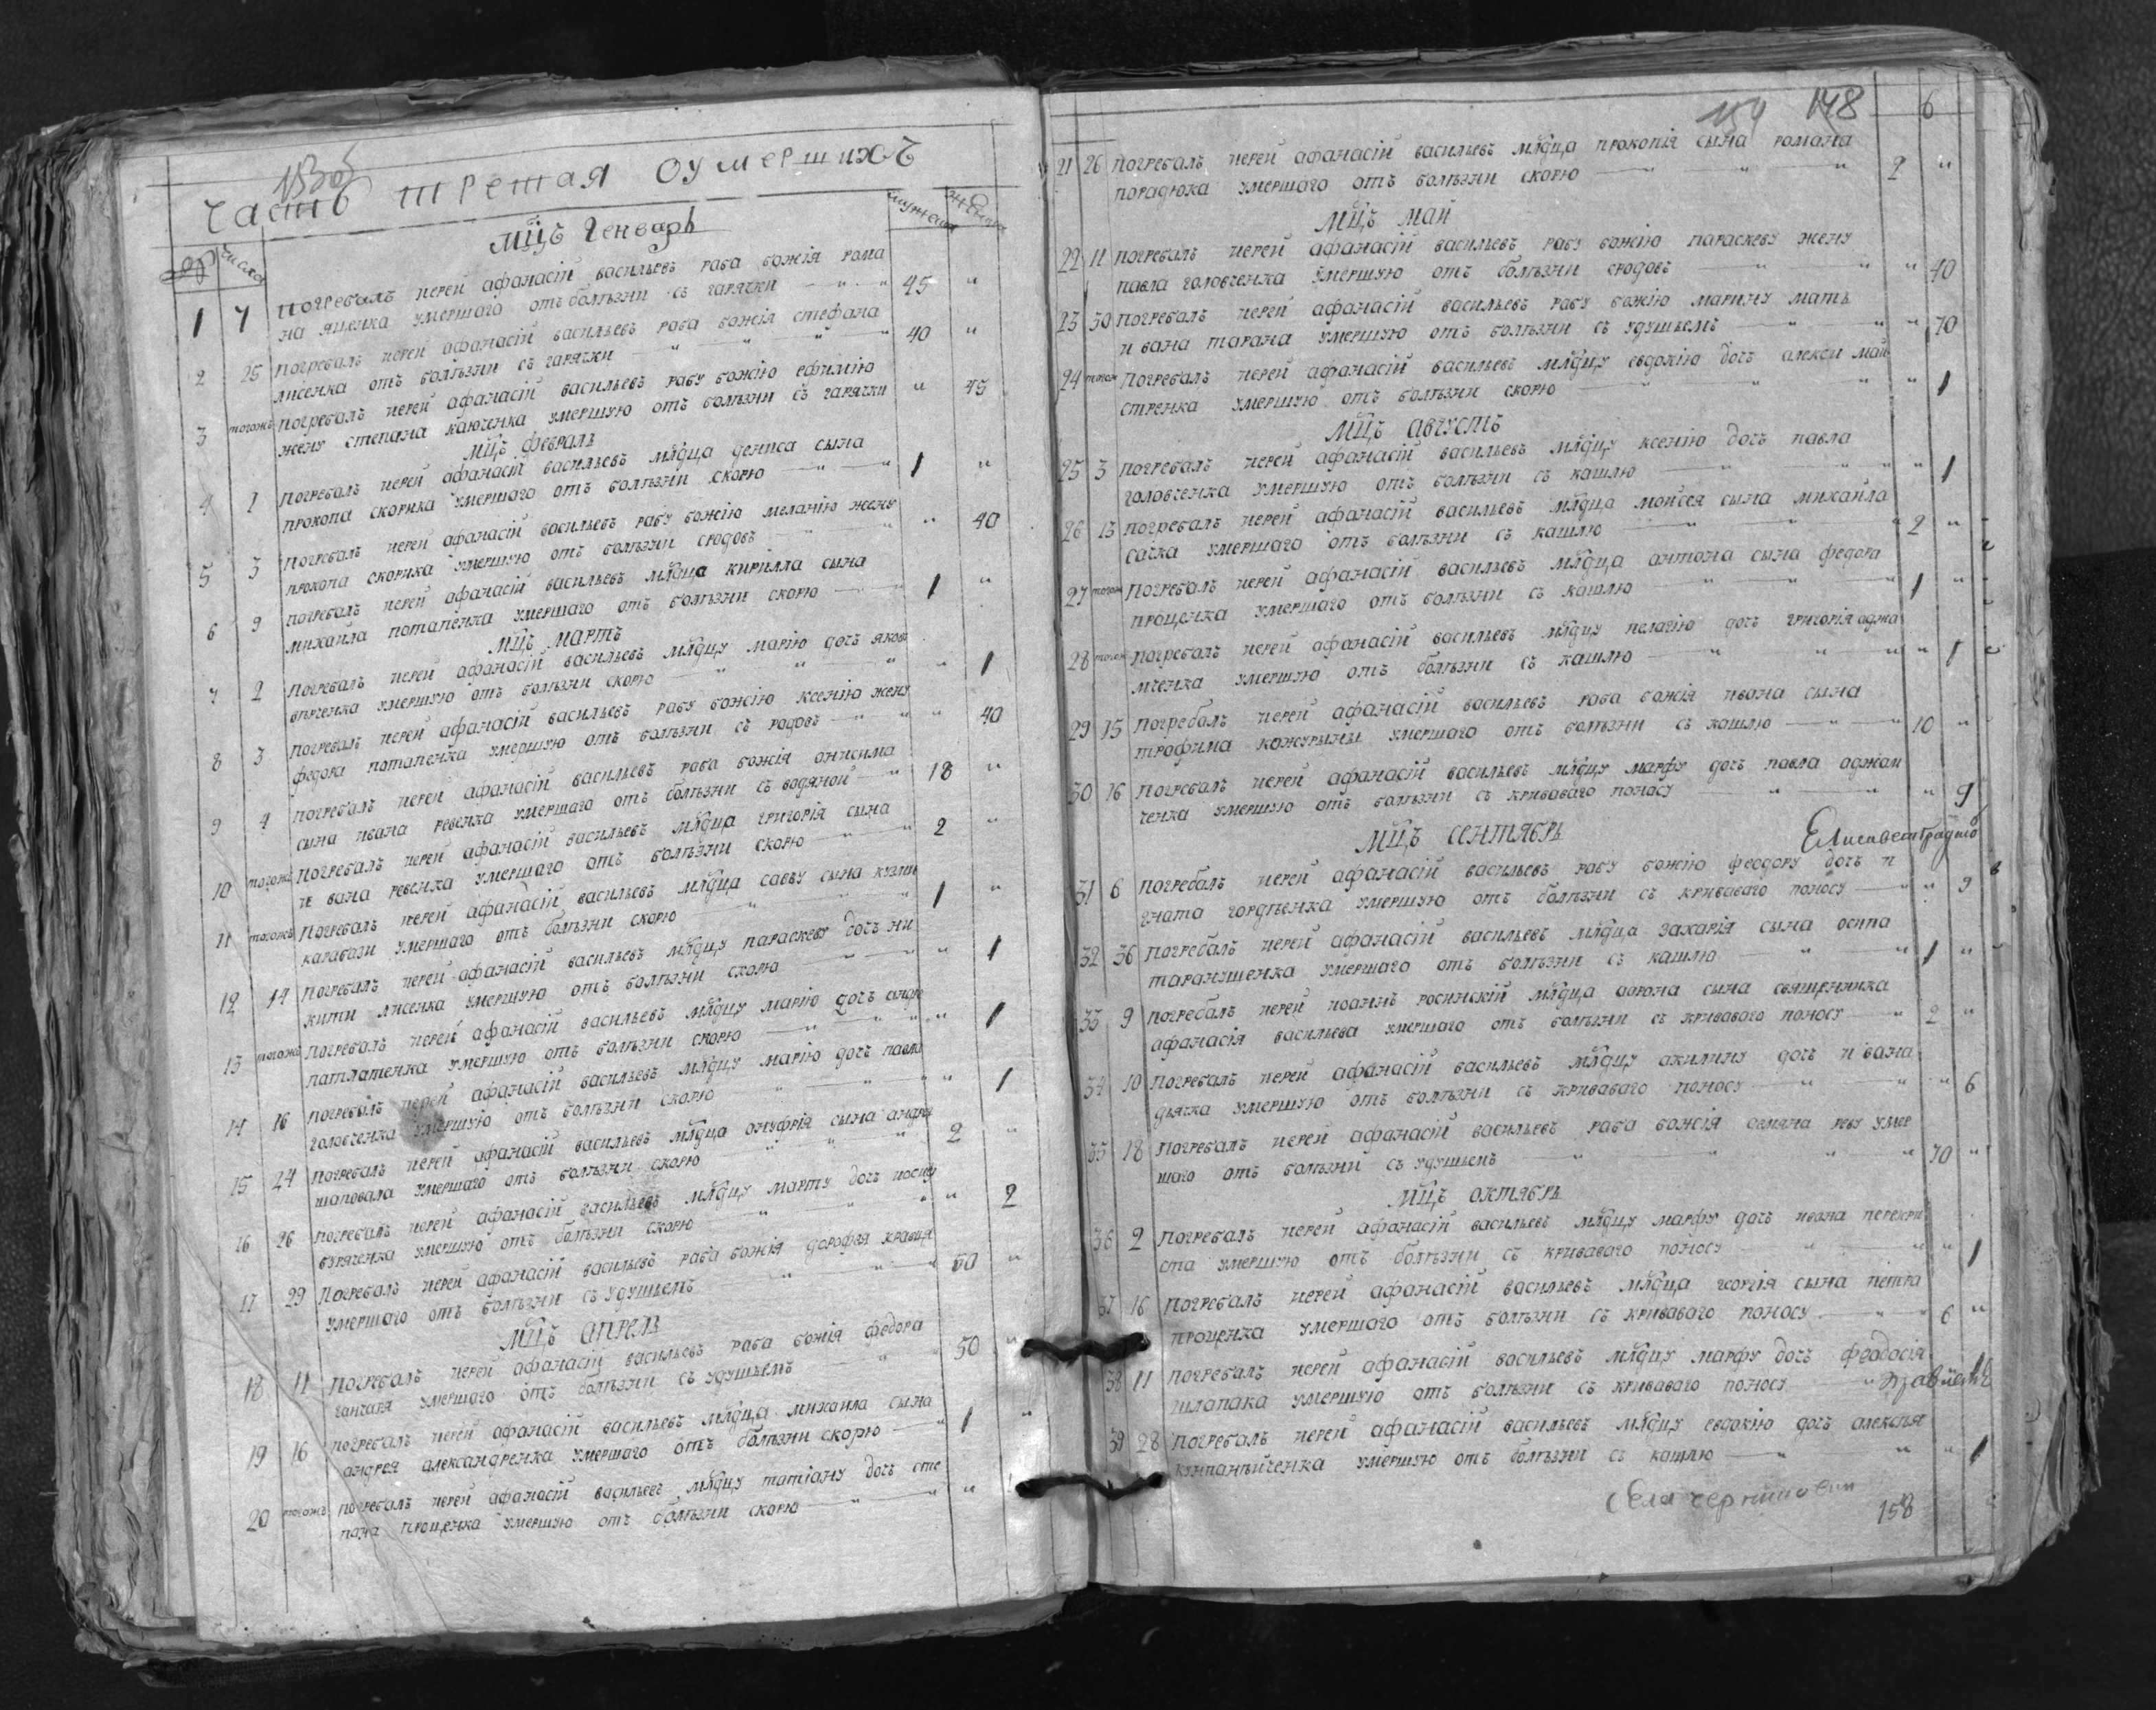 1805
Часть третая оумершихъ
мужеска женска
числа
мцъ Генварь
1 7 погребалъ иерей афанасій васильевъ раба божія рома
на яценка умершаго отъ болѣзни съ гарячки — " — " 45 "
2 25 погребалъ иерей афанасій васильевъ раба божія стефана
лисенка отъ болѣзни съ гарячки — " — " — " 40 "
3 тогожъ погребалъ иерей афанасій васильевъ рабу божію ефимію
жену степана каюченка умершую отъ болѣзни съ гарячки " 45
мцъ февраль
4 1 погребалъ иерей афанасій васильевъ млдца дениса сына
прокопа скорика умершаго отъ болѣзни скорю — " — " 1 "
5 3 погребалъ иерей афанасій васильевъ рабу божію меланію жену
прокопа скорика умершую отъ болѣзни сродовъ — " " 40
6 9 погребалъ иерей афанасій васильевъ млдца кирилла сына
михаила потапенка умершаго отъ болѣзни скорю — " 1 "
мцъ мартъ
7 2 погребалъ иерей афанасій васильевъ млдцу марію дочь якова
умершую отъ болѣзни скорю — " " " 1
8 3 погребалъ иерей афанасій васильевъ рабу божію ксенію жену
федора потапенка умершую отъ болѣзни съ родовъ — " " 40
9 4 погребалъ иерей афанасій васильевъ раба божія онисима
сына ивана ревенка умершаго отъ болѣзни съ водяной — " 18 "
10 тогожъ погребалъ иерей афанасій васильевъ млдца григорія сына
и вана ревенка умершаго отъ болѣзни скорю — " 2 "
11 тогожъ погребалъ иерей афанасій васильевъ млдца савву сына кузми
умершаго отъ болѣзни скорю — " " 1 "
12 14 погребалъ иерей афанасій васильевъ млдцу параскеву дочь ни
кити лисенка умершую отъ болѣзни скорю — " " " 1
13 тогожъ погребалъ иерей афанасій васильевъ млдцу марію дочь андре
патлатенка умершую отъ болѣзни скорю — " " " 1
14 16 погребалъ иерей афанасій васильевъ млдцу марію дочь павла
головченка умершую отъ болѣзни скорю " " " 1
15 24 погребалъ иерей афанасій васильевъ млдца онуфрія сына андрея
шаповала умершаго отъ болѣзни скорю " " 2 "
16 26 погребалъ иерей афанасій васильевъ млдцу марту дочь иосифа
буряченка умершую отъ болѣзни скорю — " " " 2
17 29 погребалъ иерей афанасій васильевъ раба божія дорофея кравця
умершаго отъ болѣзни съ удушьемъ " " 60 "
мцъ апрель
18 11 погребалъ иерей афанасій васильевъ раба божія федора
ганчаря умершаго отъ болѣзни съ удушьемъ " " 50 "
19 16 погребалъ иерей афанасій васильевъ млдца михаила сына
андрея александренка умершаго отъ болѣзни скорю — " 1 "
20 тогожъ погребалъ иерей афанасій васильевъ млдцу татіану дочь сте
пана проценка умершую отъ болѣзни скорю — " — " "
159 148 6
21 26 погребалъ иерей афанасій васильевъ млдца прокопія сына романа
порадюка умершаго отъ болѣзни скорю — " " 2 "
мцъ май
22 11 погребалъ иерей афанасій васильевъ рабу божію параскеву жену
павла головченка умершую отъ болѣзни сродовъ — " " " 40
23 30 погребалъ иерей афанасій васильевъ рабу божію марину мать
и вана тарана умершую отъ болѣзни съ удушьемъ — " " " 70
24 тогож погребалъ иерей афанасій васильевъ млдцу евдокію дочь алекси май
стренка умершую отъ болѣзни скорю — " " " " 1
мцъ августъ
25 3 погребалъ иерей афанасій васильевъ млдцу ксенію дочь павла
головченка умершую отъ болѣзни съ кашлю — " " " 1
26 13 погребалъ иерей афанасій васильевъ млдца моисея сына михаила
сачка умершаго отъ болѣзни съ кашлю — " " 2 "
27 тогож погребалъ иерей афанасій васильевъ млдца антона сына федора
проценка умершаго отъ болѣзни съ кашлю " " 1 "
28 тогож погребалъ иерей афанасій васильевъ млдцу пелагію дочь григорія аджа
мченка умершую отъ болѣзни съ кашлю — " " " " 1
29 15 погребалъ иерей афанасій васильевъ раба божія ивана сына
трофима кожурыны умершаго отъ болѣзни съ кашлю — " — " 10 "
30 16 погребалъ иерей афанасій васильевъ млдцу марфу дочь павла аджам
ченка умершую отъ болѣзни съ кривваго поносу " " " 9
мцъ сентябрь
31 6 погребалъ иерей афанасій васильевъ рабу божію феодору дочь и
гната гордѣенка умершую отъ болѣзни съ криваваго поносу — " " 9
32 36 погребалъ иерей афанасій васильевъ млдца захарія сына осипа
таранушенка умершаго отъ болѣзни съ кашлю — " " 1 "
33 9 погребалъ иерей иоаннъ росинскій млдца аврона сына священника
афанасія васильева умершаго отъ болѣзни съ кривавого поносу — " 2 "
34 10 погребалъ иерей афанасій васильевъ млдцу акилину дочь и вана
дьячка умершую отъ болѣзни съ криваваго поносу — " " " 6
35 18 погребалъ иерей афанасій васильевъ раба божія реву умер
шаго отъ болѣзни съ удушьемъ — " " " " 70 "
мцъ октябрь
36 2 погребалъ иерей афанасій васильевъ млдцу марфу дочь ивана перехри
ста умершую отъ болѣзни съ криваваго поносу " " " 1
37 16 погребалъ иерей афанасій васильевъ млдца георгія сына петра
проценка умершаго отъ болѣзни съ криваваго поносу — " 6 "
38 11 погребалъ иерей афанасій васильевъ млдцу марфу дочь феодосія
шлапака умершую отъ болѣзни съ криваваго поносу "
39 28 погребалъ иерей афанасій васильевъ млдцу евдокію дочь алексѣя
умершую отъ болѣзни съ кашлю — " " " 1
158